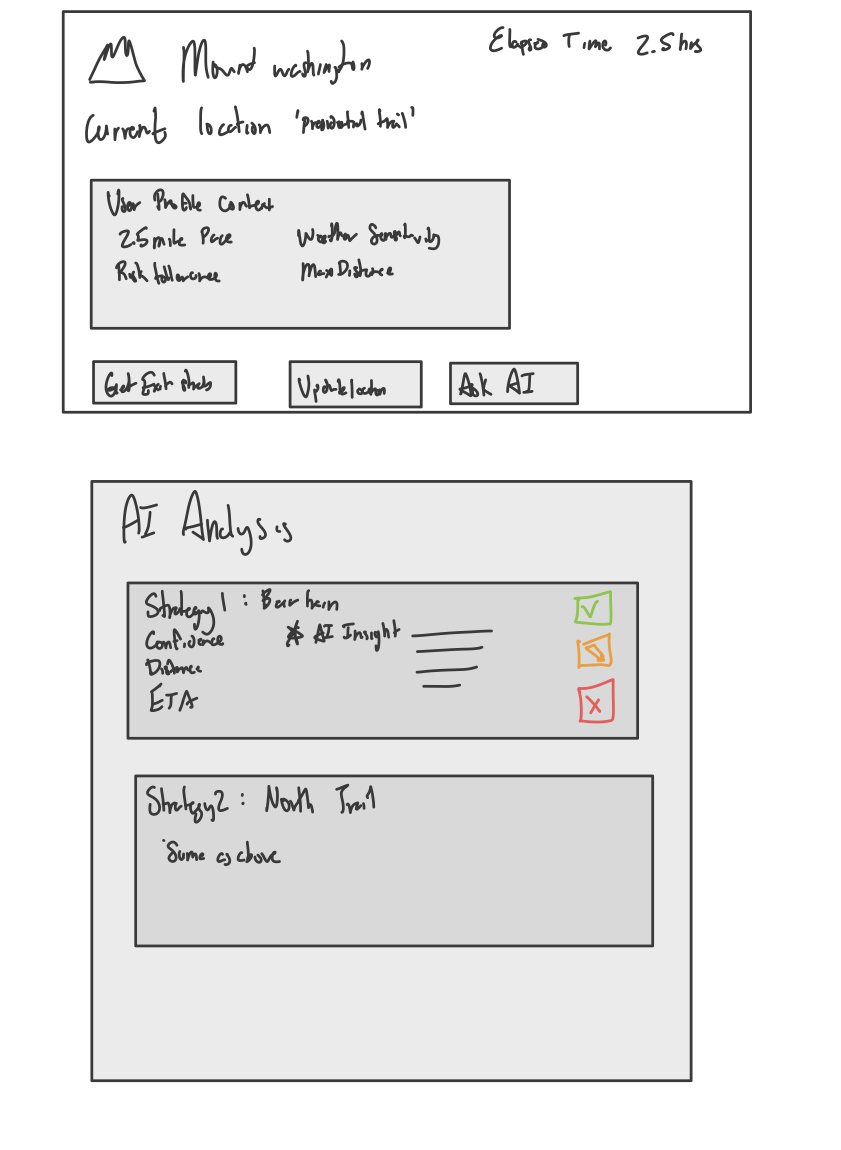 Mount washington
Elapsed Time 2.5 hrs
Current location 'presidential trail'
User Profile Context
2.5 mile Pace
Weather Sensitivity
Risk tollarance
Max Distance
Get Exit strats
Update location
Ask AI
AI Analysis
Strategy 1 : Bear train
Confidence
* AI Insight
Distance
ETA
Strategy 2 : North Trail
Same as above